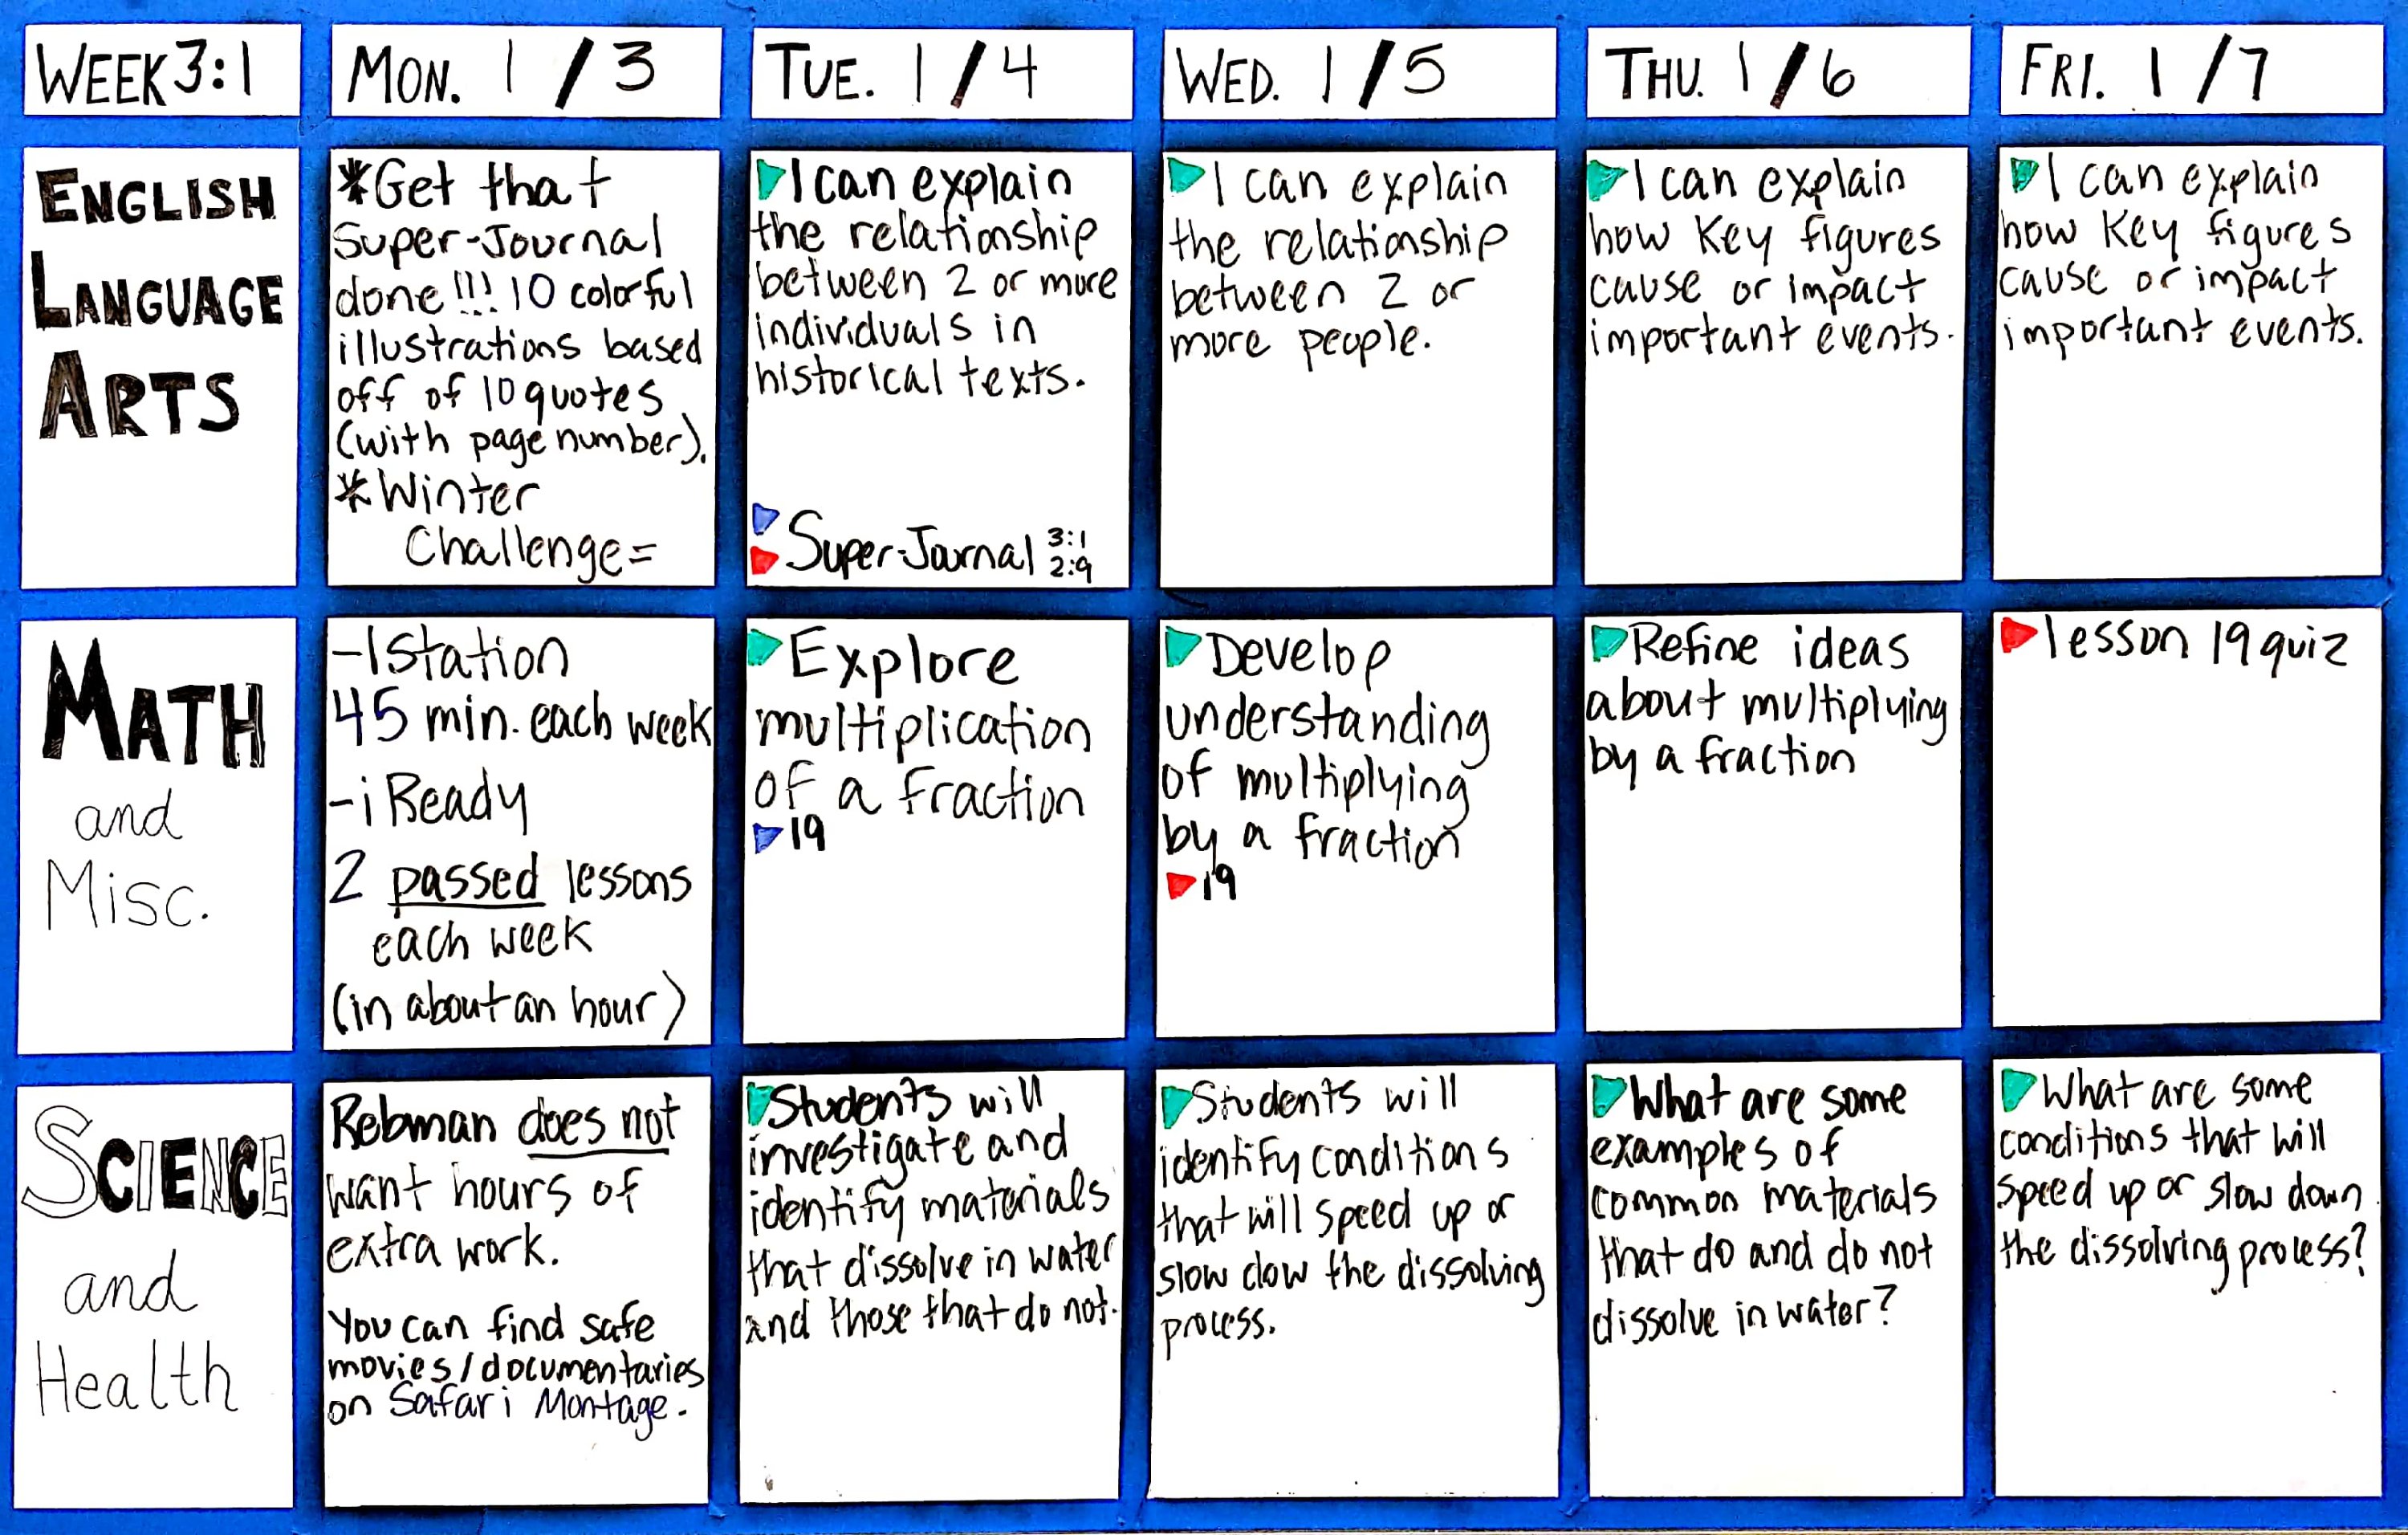 WEEK 3:1
MON. 1/3
TUE. 1/4
WED. 1/5
THU. 1/6
FRI. 1/7
ENGLISH
LANGUAGE
ARTS
*Get that
Super-Journal
done!!! 10 colorful
illustrations based
off of 10 quotes
(with page number).
*Winter
Challenge=
I can explain
the relationship
between 2 or more
individuals in
historical texts.
Super-Journal 3:1
2:9
I can explain
the relationship
between 2 or
more people.
I can explain
how key figures
cause or impact
important events.
I can explain
how key figures
cause or impact
important events.
MATH
and
Misc.
-Istation
45 min. each week
-iReady
2 passed lessons
each week
(in about an hour)
Explore
multiplication
of a fraction
19
Develop
understanding
of multiplying
by a fraction
19
Refine ideas
about multiplying
by a fraction
lesson 19 quiz
SCIENCE
and
Health
Rebman does not
want hours of
extra work.
You can find safe
movies/documentaries
on Safari Montage.
Students will
investigate and
identify materials
that dissolve in water
and those that do not.
Students will
identify conditions
that will speed up or
slow dow the dissolving
process.
What are some
examples of
common materials
that do and do not
dissolve in water?
What are some
conditions that will
speed up or slow down
the dissolving process?